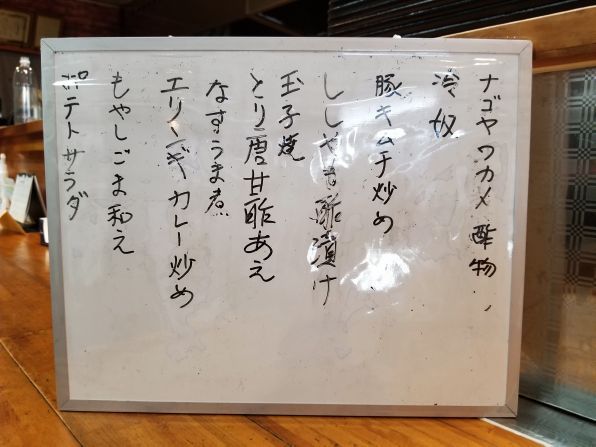 ナゴヤワカメ酢物
冷奴
豚キムチ炒め
ししゃも酢漬け
玉子焼
とり唐甘酢あえ
なすうま煮
エリンギカレー炒め
もやしごま和え
ポテトサラダ